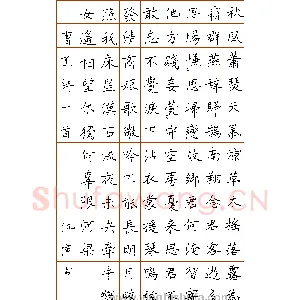 秋風蕭瑟天氣涼草木搖落露為
霜群燕辭歸雁南翔念君客遊多
思腸慊慊思歸戀故鄉君何淹留寄
他方賤妾煢煢守空房憂來思君不
敢忘不覺淚下沾衣裳援琴鳴弦
發清商短歌微吟不能長明月皎皎
照我床星漢西流夜未央牽牛織
女遙相望爾獨何辜限河梁
曹丕詩一首